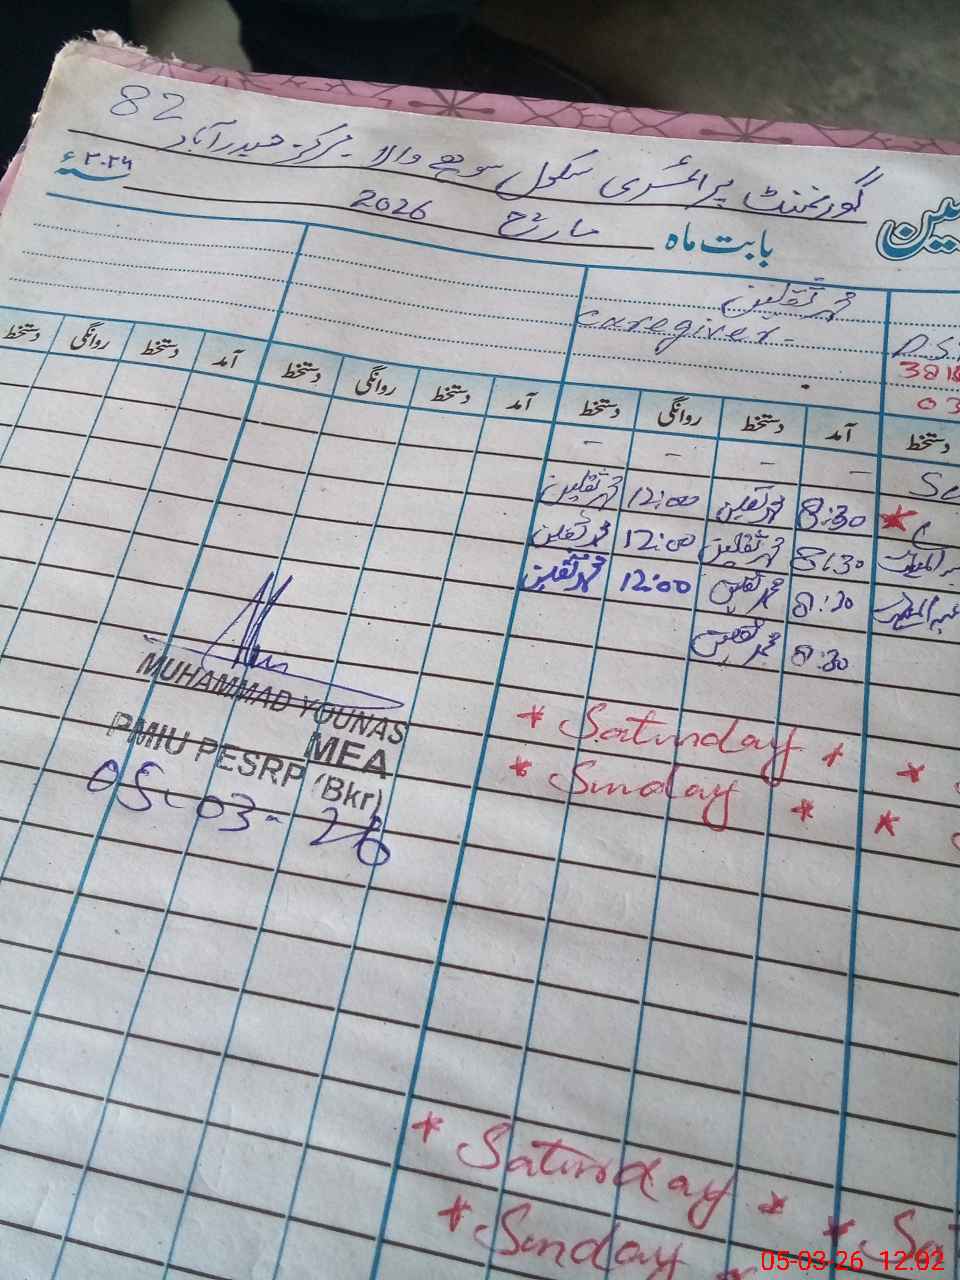 82
گورنمنٹ پرائمری سکول سوھے والا - مرکز حیدرآباد
بابت ماہ مارچ 2026 ۲۰۲۶ء
محمد ثقلین
Caregiver -
381
03
دستخط آمد دستخط روانگی دستخط آمد دستخط روانگی دستخط آمد دستخط روانگی دستخط
- - - -
8:30 محمد ثقلین 12:00 محمد ثقلین
8:30 محمد ثقلین 12:00 محمد ثقلین
8:30 محمد ثقلین 12:00 محمد ثقلین
8:30 محمد ثقلین
MUHAMMAD YOUNAS
MEA
PMIU PESRP (Bkr)
05-03-26
* Saturday * *
* Sunday * *
* Saturday * * Sa
* Sunday *
05-03-26 12:02